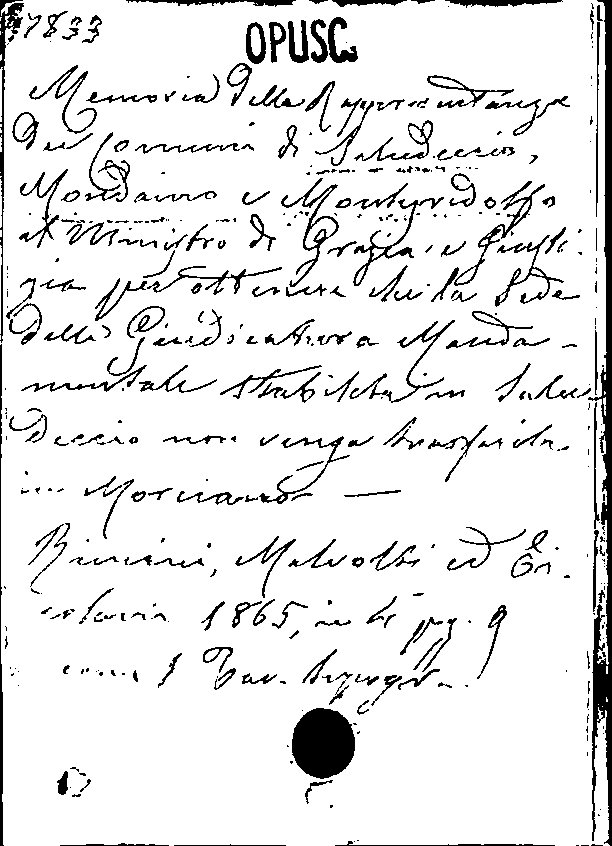 7833
OPUSC.
Memoria della Rappresentanza
dei Comuni di Saludeccio,
Mondaino e Montegridolfo
al Ministro di Grazia e Giusti-
zia per ottenere che la Sede
della Giudicatura Manda-
mentale stabilita in Salu-
deccio non venga trasferita
in Morciano —
Rimini, Malvolti ed Er-
colani 1865, in 4° pag. 9
con 1 Tav.